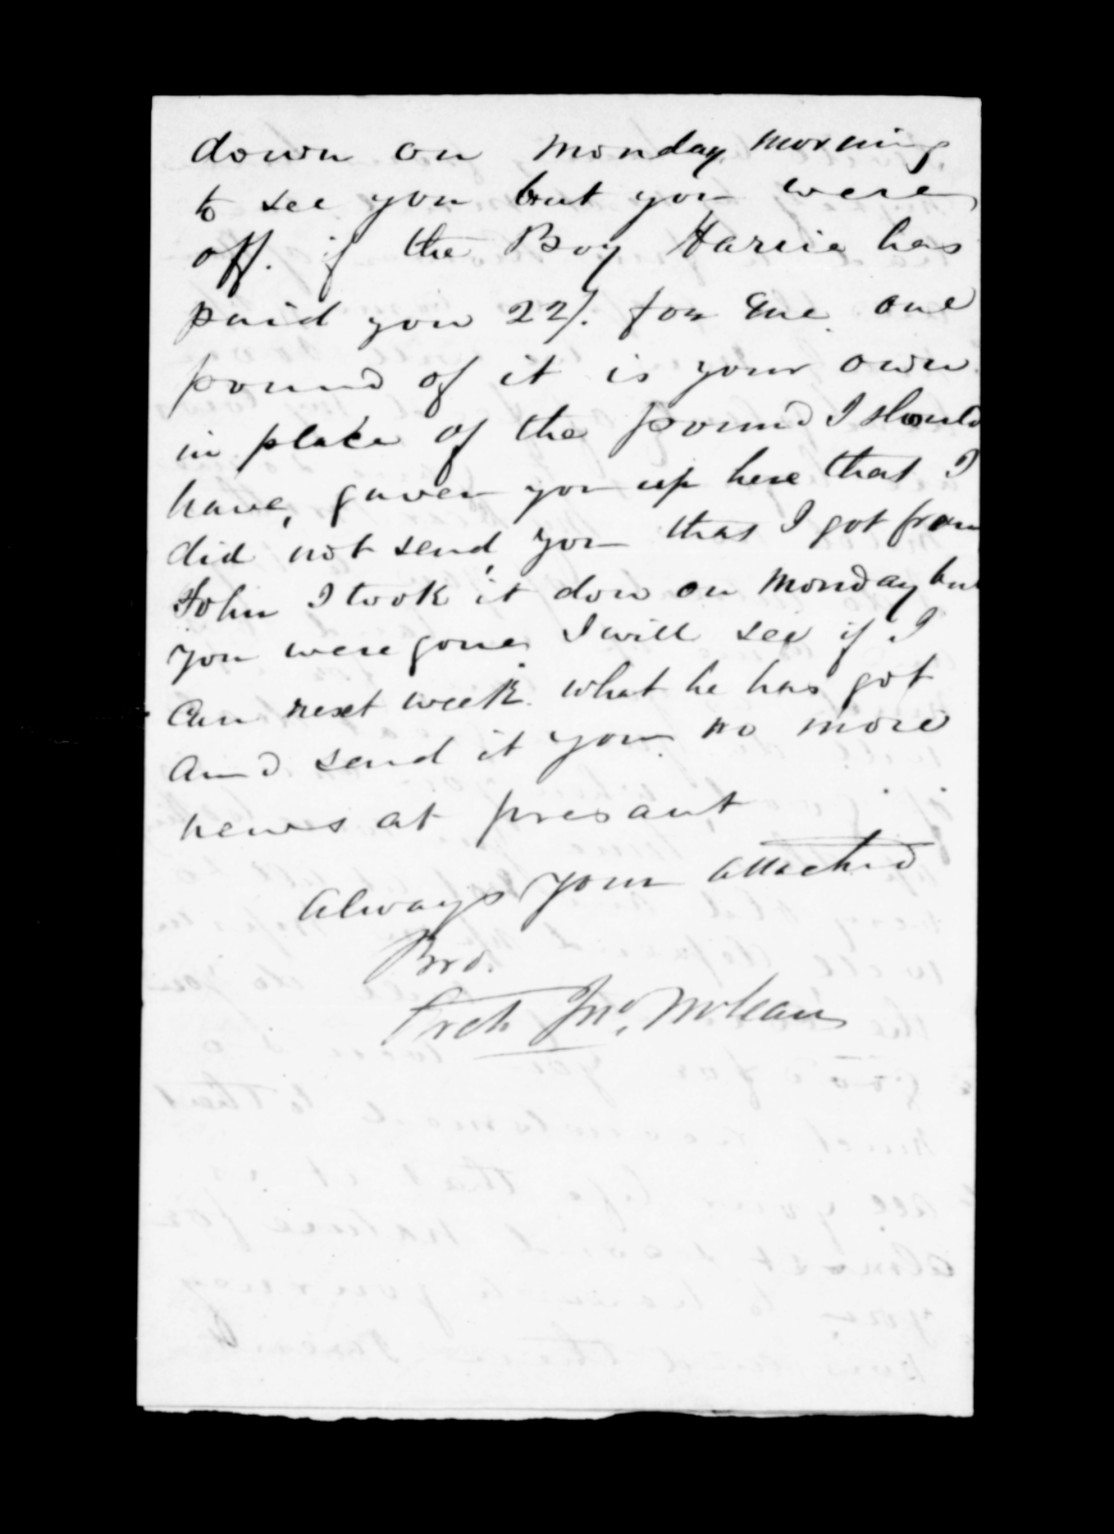 down on Monday morning
to see you but you were
off. if the Boy Harrie has
paid you 22/. for me one
pound of it is your own
in place of the pound I should
have, gaven you up here that I
did not send you that I got from
John I took it dow on Monday but
you were gone I will see if I
can next week what he has got
and send it you no more
news at presant
always your attached
Bro.
Arch Jno. McLean